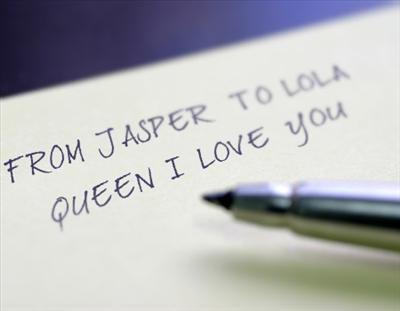 FROM JASPER TO LOLA
QUEEN I LOVE YOU